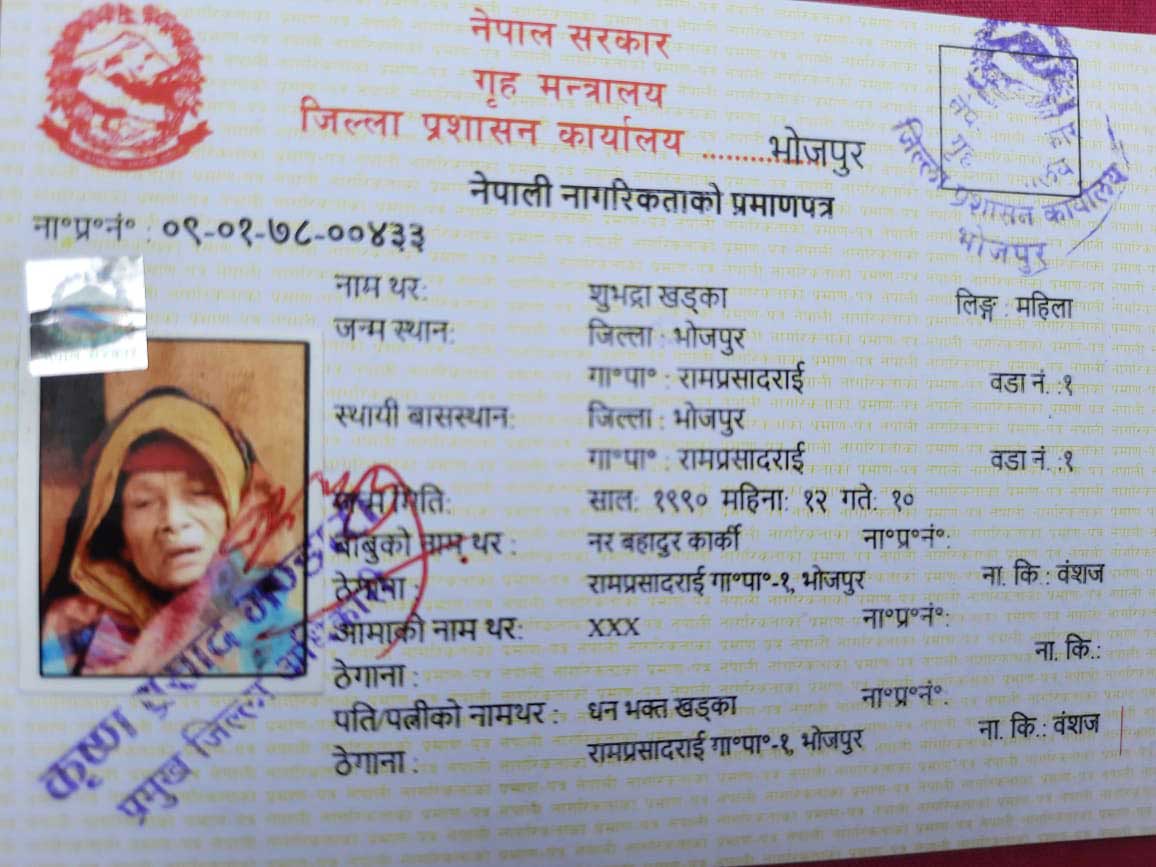 नेपाल सरकार
गृह मन्त्रालय
जिल्ला प्रशासन कार्यालय ..........भोजपुर
नेपाली नागरिकताको प्रमाणपत्र
ना॰प्र॰नं॰ : ०९-०१-७८-००४३३
नाम थर: शुभद्रा खड्का लिङ्ग : महिला
जन्म स्थान: जिल्ला : भोजपुर
गा॰पा॰ : रामप्रसादराई वडा नं. :१
स्थायी बासस्थान: जिल्ला : भोजपुर
गा॰पा॰ : रामप्रसादराई वडा नं. :१
जन्म मिति: साल: १९९० महिना: १२ गते: १०
बाबुको नाम थर : नर बहादुर कार्की ना॰प्र॰नं॰:
ठेगाना : रामप्रसादराई गा॰पा॰-१, भोजपुर ना. कि.: वंशज
आमाको नाम थर: xxx ना॰प्र॰नं॰:
ठेगाना : ना. कि.:
पति/पत्नीको नामथर : धन भक्त खड्का ना॰प्र॰नं॰:
ठेगाना : रामप्रसादराई गा॰पा॰-१, भोजपुर ना. कि.: वंशज
जिल्ला प्रशासन कार्यालय
भोजपुर
कृष्ण प्रसाद
प्रमुख जिल्ला अधिकारी